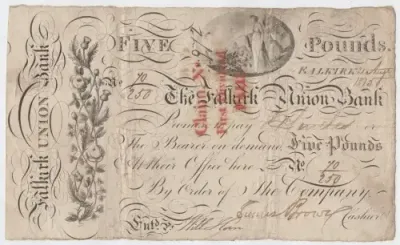 Falkirk UNION Bank
FIVE Pounds.
FALKIRK
No 70
250
Claim No
First Dividend
The Falkirk Union Bank
Promise to pay or
The Bearer on demand Five Pounds
At their Office here No 70
250
By Order of The Company
Cashier
Entd